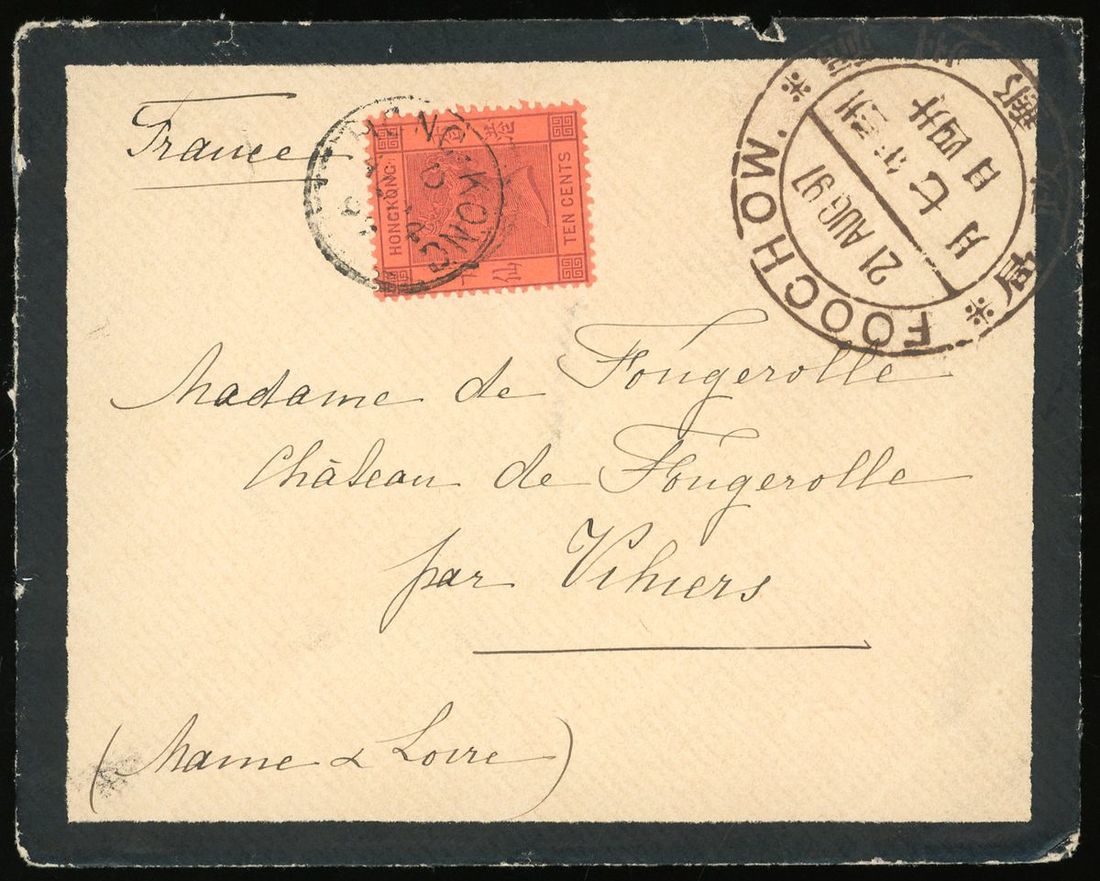 France
HONG KONG
HONGKONG
TEN CENTS
FOOCHOW.
21 AUG 97
七月
廿四日
局
Madame de Fougerolle
Château de Fougerolle
par Vihiers
(Maine & Loire)